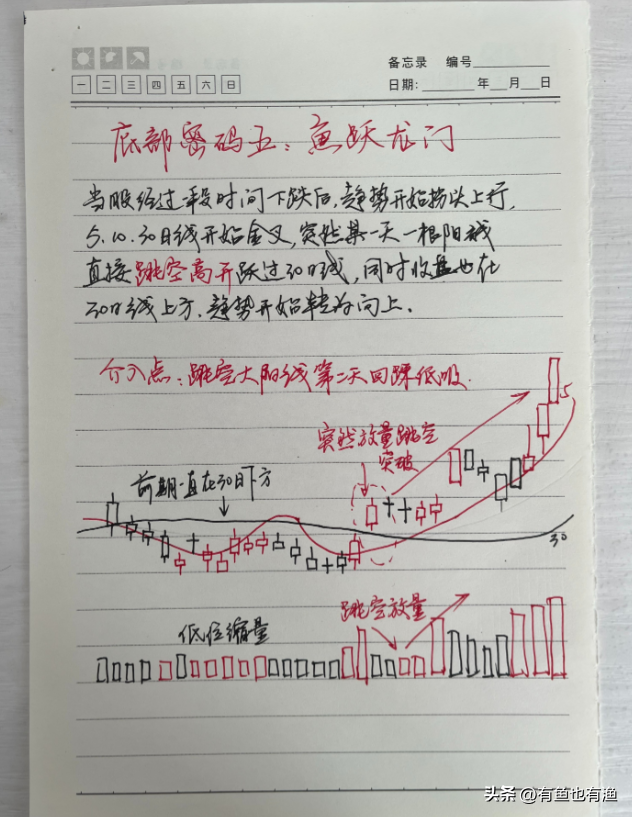 备忘录 编号
一 二 三 四 五 六 日
日期: 年 月 日
底部密码五：鱼跃龙门
当股经过一段时间下跌后，趋势开始拐头上行，
5.10.30日线开始金叉，突然某一天一根阳线
直接跳空高开跃过30日线，同时收盘也在
30日线上方，趋势开始转为向上。
介入点：跳空大阳线第二天回踩低吸.
突然放量跳空
突破
前期一直在30日下方
5
30
跳空放量
低位缩量
头条 @有鱼也有渔